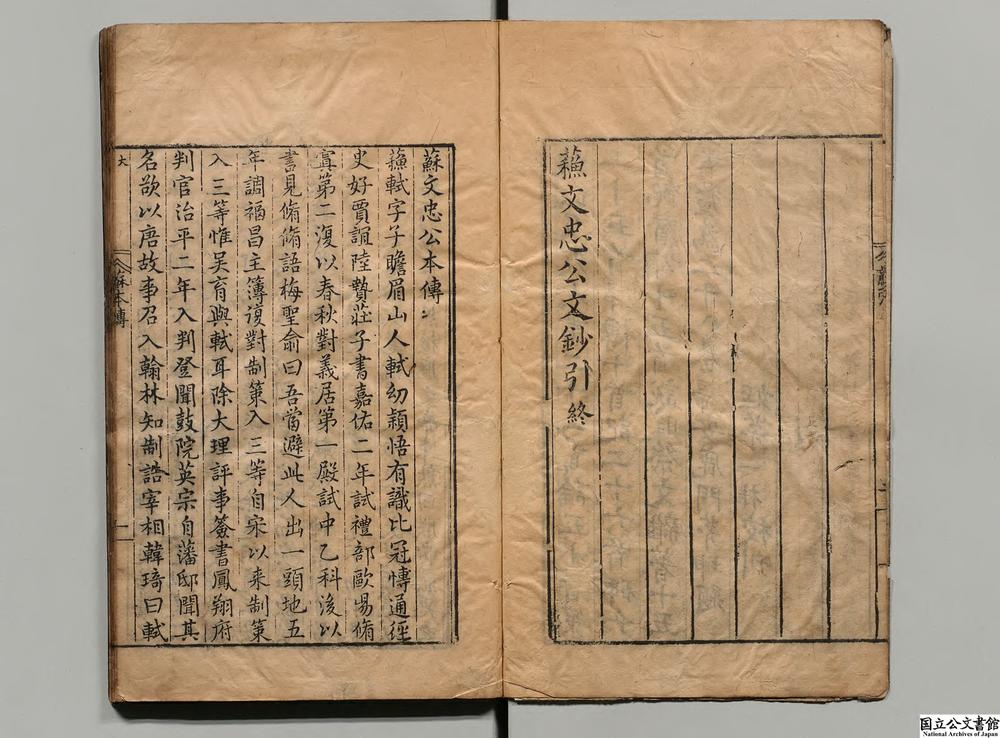 蘓文忠公文鈔引終
蘇文忠公本傳
蘓軾字子瞻眉山人軾幼穎悟有識比冠愽通徑
史好賈誼陸贄莊子書嘉佑二年試禮部歐陽脩
寘第二復以春秋對義居第一殿試中乙科後以
書見脩脩語梅聖俞曰吾當避此人出一頭地五
年調福昌主簿復對制策入三等自宋以来制策
入三等惟吴育與軾耳除大理評事簽書鳳翔府
判官治平二年入判登聞鼓院英宗自藩邸聞其
名欲以唐故事召入翰林知制誥宰相韓琦曰軾
大
蘇本傳
一
国立公文書館
National Archives of Japan